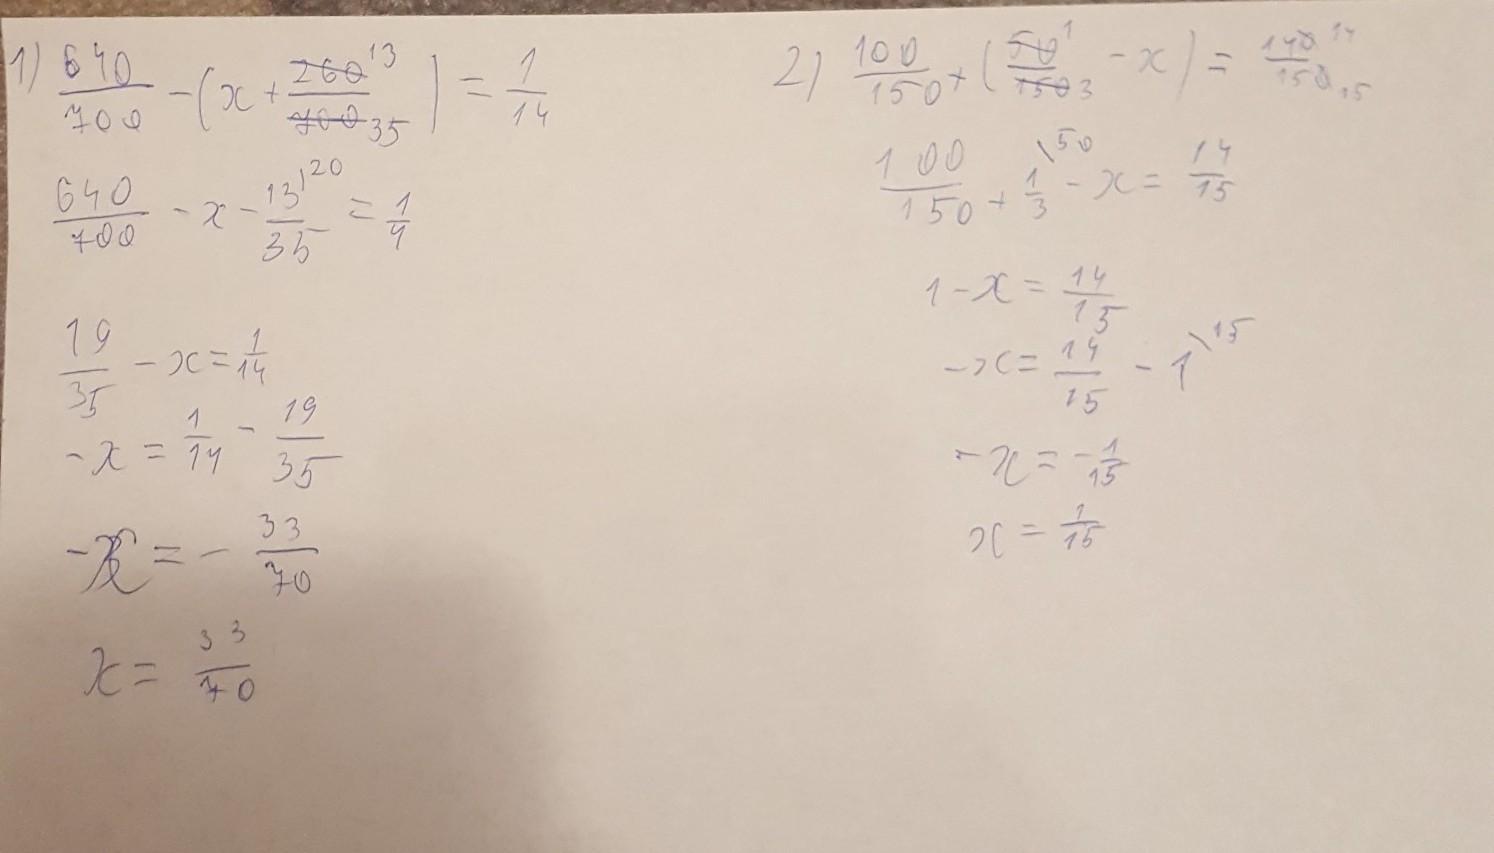 1) 640/700 - (x + 260/700) = 1/14 13 35
640/700 - x - 13/35 \20 = 1/4
19/35 - x = 1/14
-x = 1/14 - 19/35
-x = - 33/70
x = 33/70
2) 100/150 + (50/150 - x) = 140/150 1 3 14 15
100/150 + 1/3 \50 - x = 14/15
1 - x = 14/15
-x = 14/15 - 1 \15
-x = - 1/15
x = 1/15